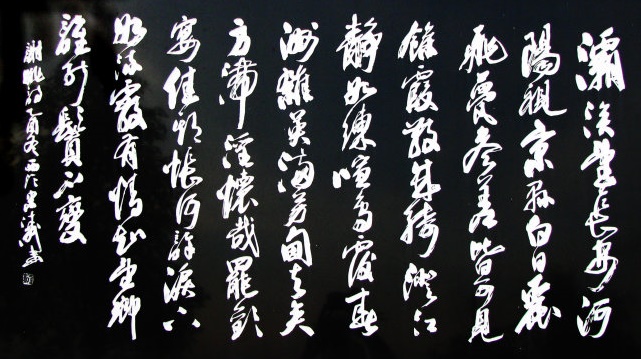 灞涘望長安河
陽視京縣白日麗
飛甍參差皆可見
餘霞散成綺澄江
靜如練喧鳥覆春
洲雜英滿芳甸去矣
方滯淫懷哉罷歡
宴佳期悵何許淚下
如流霰有情知望鄉
誰能鬢不變
謝朓詩